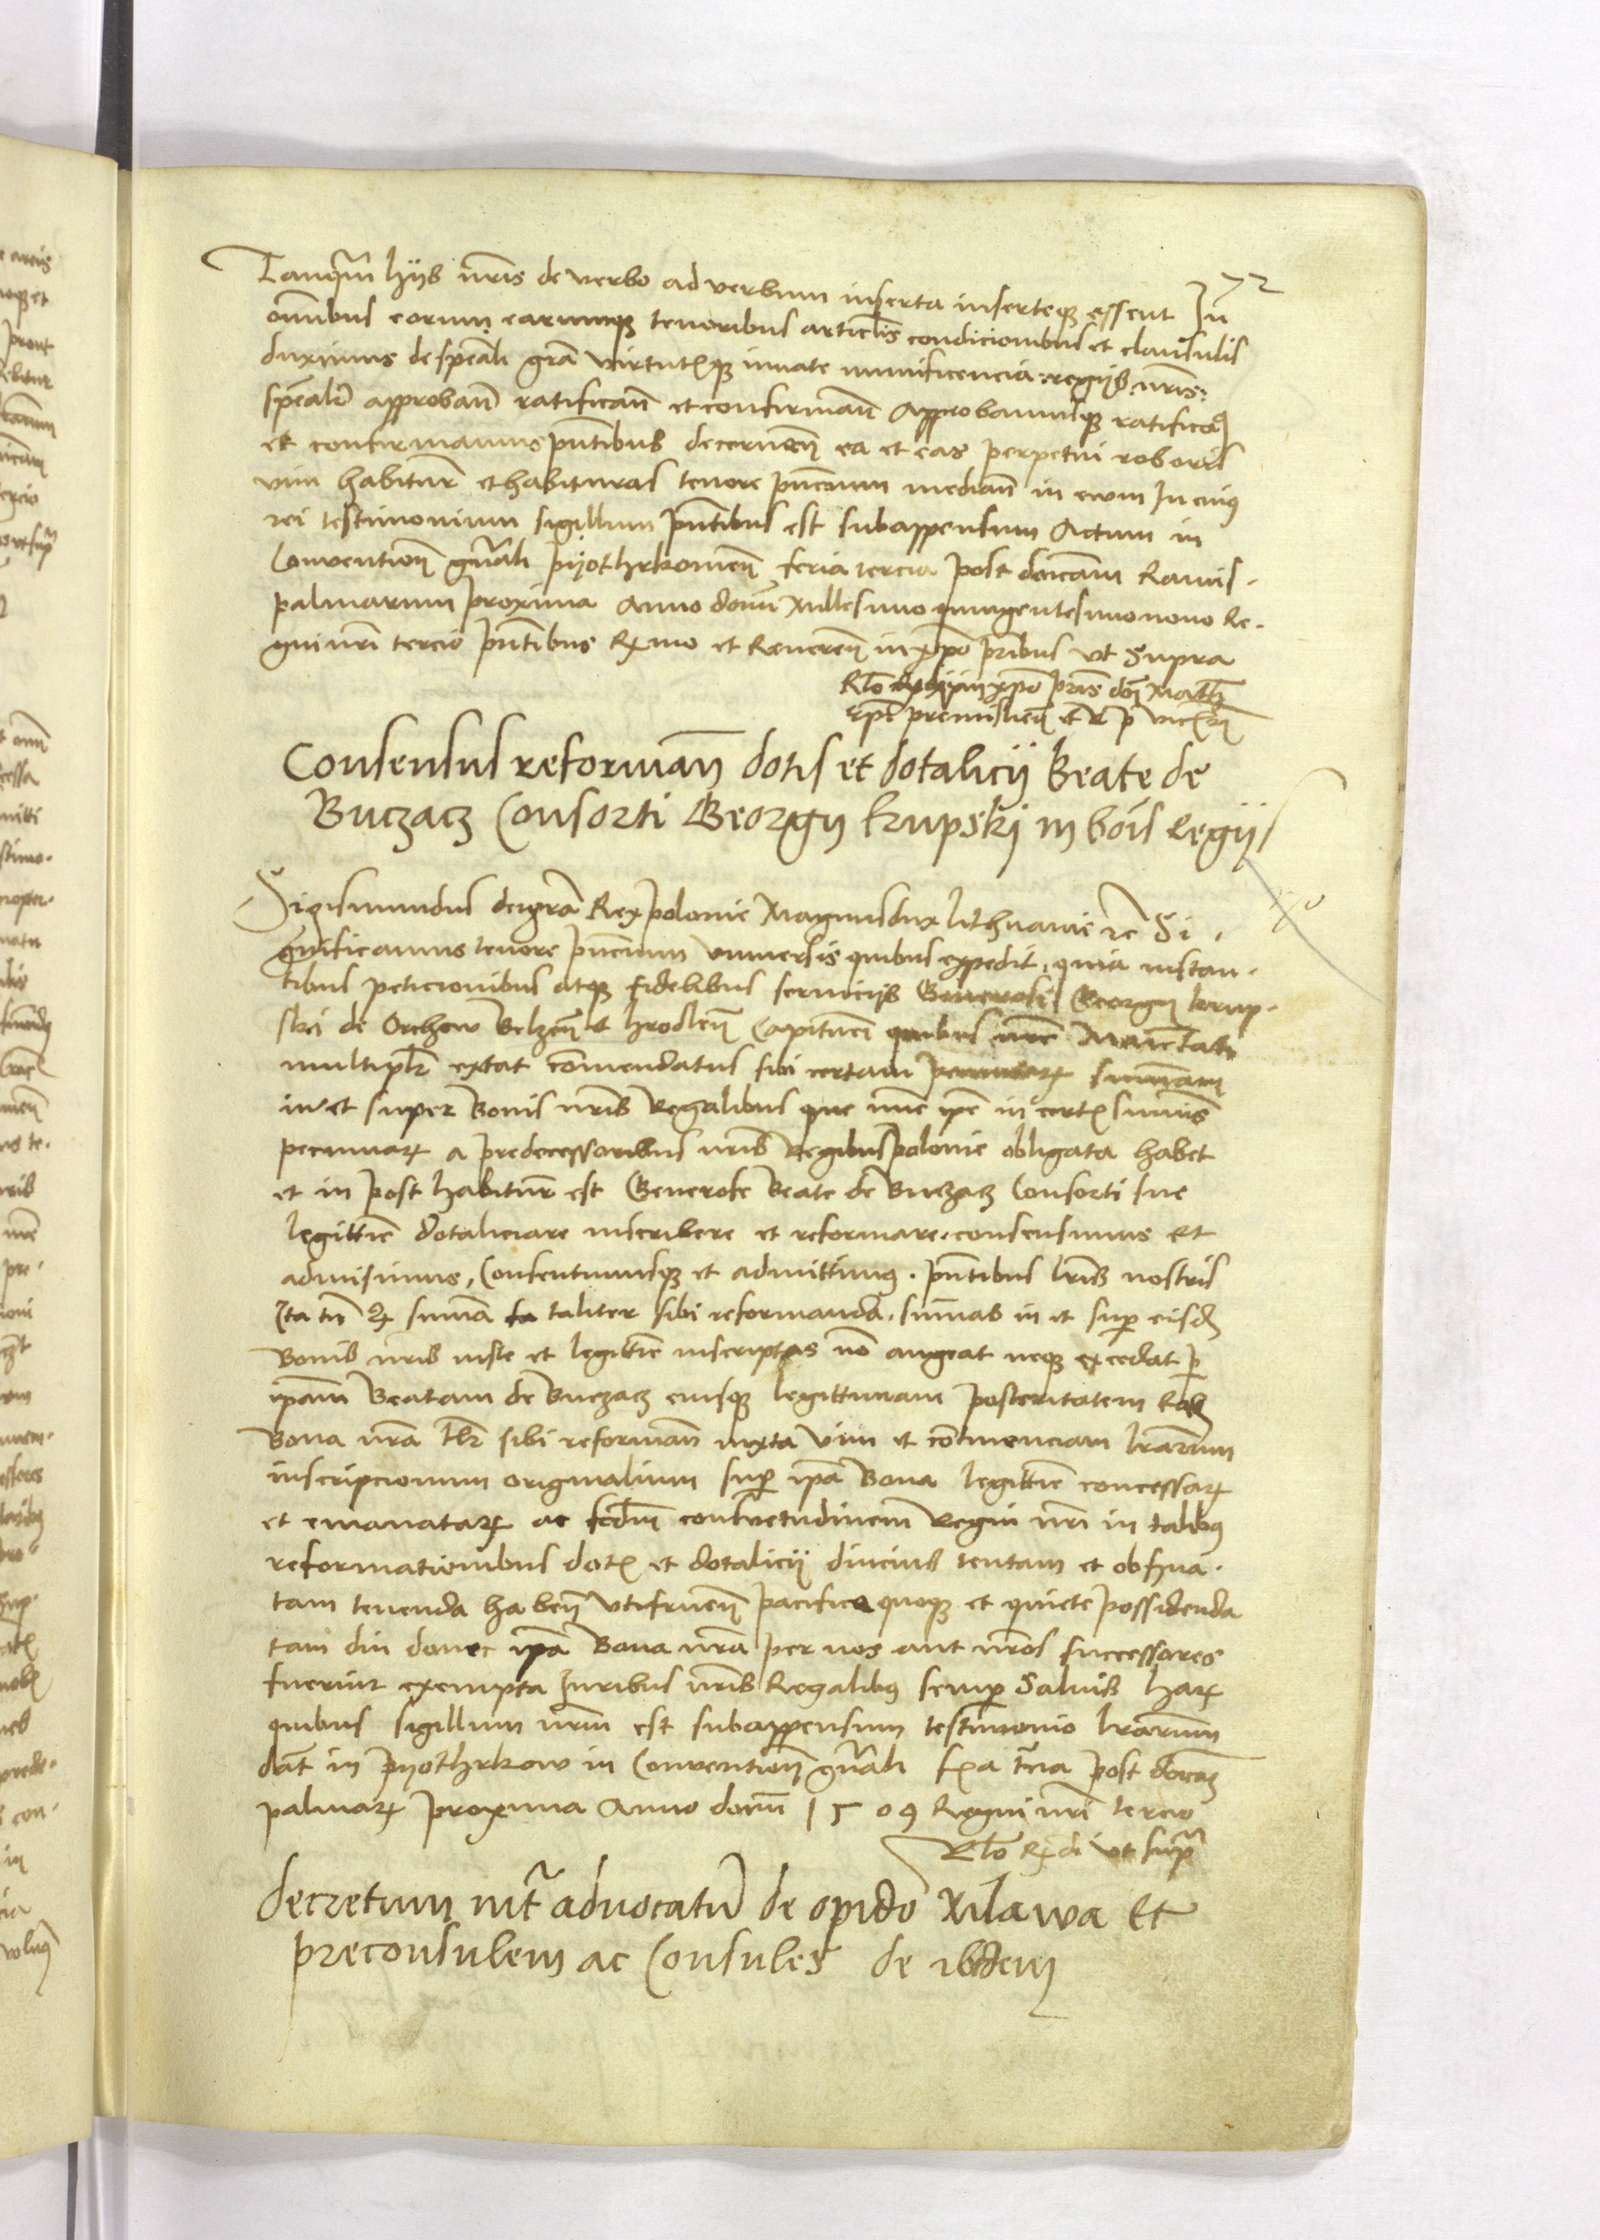 72
Tanq̃m hijs nr̃is de verbo ad verbum inserta inserteq; essent In
om̃ibus eorum earumq; tenoribus articl̃is condicionibus et clausulis
duximus de sp̃eali gr̃a virtuteq; innate munificencia regijs nr̃is
sp̃ealr̃ approban̄ ratifican̄ et confirman̄ Approbamusq; ratifica
et confirmamus pñtibus decernen̄ ea et eas perpetui roboris
vim habitur̃ et habituras tenore pñcium median̄ in ewm In cuius
rei testimonium sigillum pñtibus est subappensum Actum in
Convention̄ gñali pijothrkowien̄ feria tercia post dnicam Ramis
palmarum proxima Anno domi Millesimo quingentesimo nono Re-
gni nr̃i tercio pñtibus Rx̃mo et Reveren̄ in xp̃o pr̃ibus vt Supra
Rl̃o in xp̃o pr̃is dn̄i Math
Ep̃i premislien̄ et R p vice
Consensus reforman̄ dotis et dotalicij Beate de
Buczacz Consorti Georgij krupskj in bo͂is Regijs
Sigismundus dei gr̃a Rex polonie Magnus dux lithuanie rc̃ Si
gnificamus tenore pñcium vniversis quibus expedit, quia instan-
tibus peticionibus atq; fidelibus seruicijs Generosi Georgij krup-
ski de Orchow Belzen̄ et hrodlen̄ Capituen̄ quibus nr̃e Maiestati
multiplr̃ extat com̃endatus sibi certam pecuniar͂ sum̃am
in et super Bonis nr̃is Regalibus que nunc ip̃e in certis sum̃is
pecuniar͂ a predecessoribus nr̃is Regibus polonie obligata habet
et in post habitur͂ est Generose Beate de Buczacz Consorti sue
legittie͂ dotaliciare inscribere et reformare. consensimus et
admisimus, Consentimusq; et admittimus. pñtibus lr̃is nostris
Ita tñ q; sum̃a taliter sibi reformanda. sum̃as in et sup eisd͂
Bonis nr̃is iuste et legittie͂ inscriptas no͂ augeat neq; excedat p
ip̃am Beatam de Buczacz eiusq; legittimam posteritatem
Bona nr̃a tlr̃ sibi reforman̄ iuxta vim et contine͂nciam lr̃arum
inscripcionum originalium sup ip̃a Bona legittie͂ concessar͂
et emanatar͂ ac scd̃m consuetudinem Regni nr̃i in talibus
reformationibus dotis et dotalicij diucius tentam et obserua-
tam tenenda haben̄ vtifruen̄ pacifice quoq; et quiete possidenda
tam diu donec ip̃a Bona nr̃a per nos aut nr̃os successores
fuerint exempta Iuribus nr̃is Regalibus semp Saluis har͂
quibus sigillum nr̃m est subappensum testimonio lr̃arum
dat͂ in pijothrkow in Convention̄ gñali fe͂a t͂cia post dn̄icam
palmar͂ proxima Anno domi 1509 Regni nr̃i tercio
Rl̃o Rx̃di vt supra
decretum int͂ aduocatu͂ de opido Milawa Et
preconsulem ac Consules de ibidem